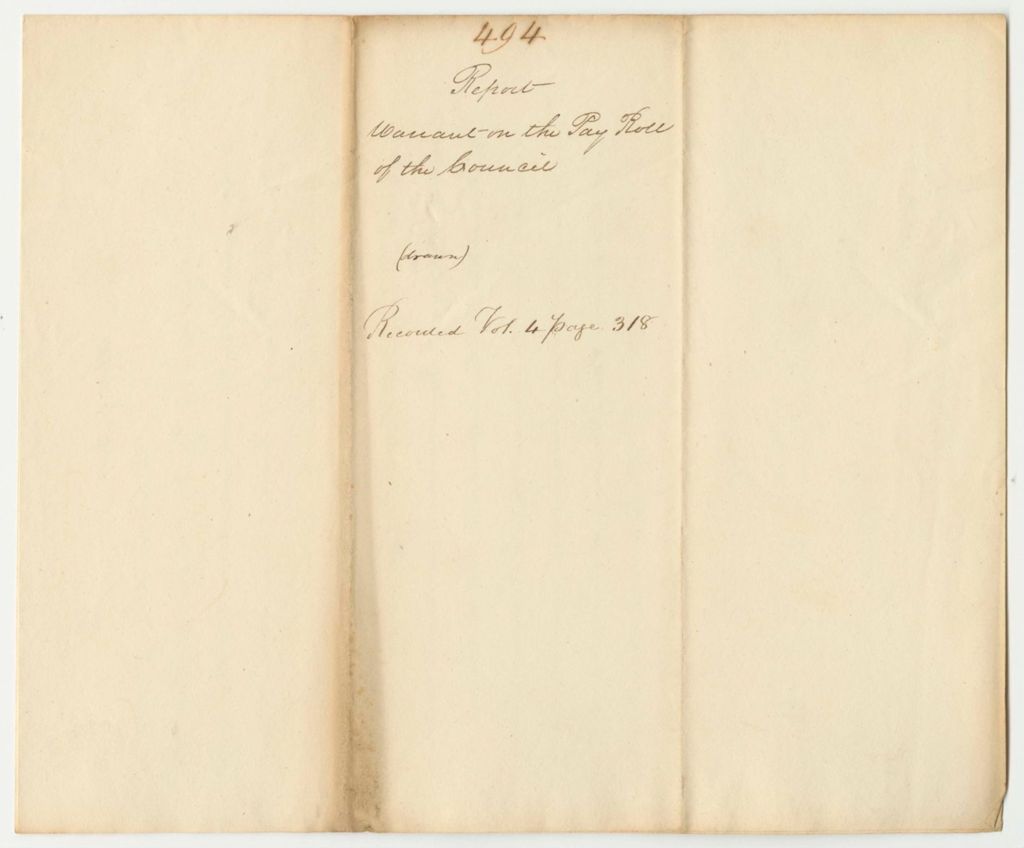 494
Report
Warrant on the Pay Roll
of the Council
(drawn)
Recorded Vol. 4 page 318